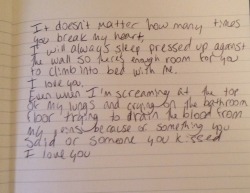 It doesn't matter how many times
you break my heart,
I will always sleep pressed up against
the wall so there's enough room for you
to climb into bed with me.
I love you.
Even when I'm screaming at the top
of my lungs and crying on the bathroom
floor trying to drain the blood from
my because of something you
said or someone you kissed
I love you